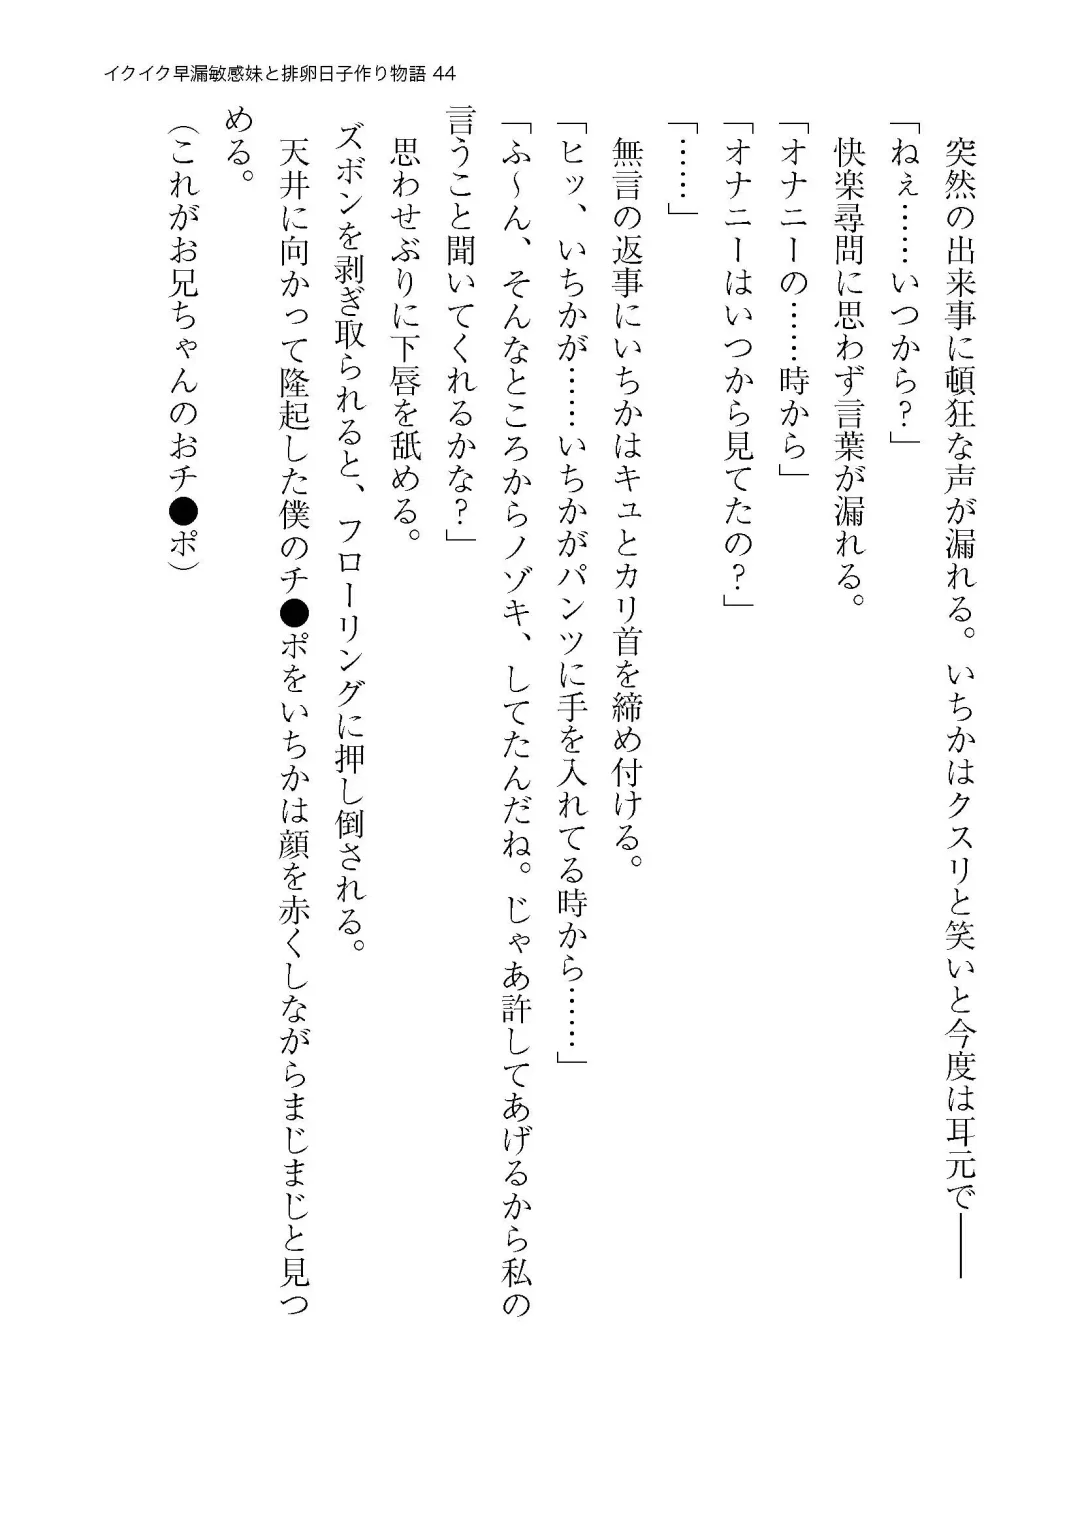 イクイク早漏敏感妹と排卵日子作り物語 44
突然の出来事に頓狂な声が漏れる。いちかはクスリと笑いと今度は耳元で――
「ねぇ……いつから？」
快楽尋問に思わず言葉が漏れる。
「オナニーの……時から」
「オナニーはいつから見てたの？」
「……」
無言の返事にいちかはキュとカリ首を締め付ける。
「ヒッ、いちかが……いちかがパンツに手を入れてる時から……」
「ふ～ん、そんなところからノゾキ、してたんだね。じゃあ許してあげるから私の
言うこと聞いてくれるかな？」
思わせぶりに下唇を舐める。
ズボンを剥ぎ取られると、フローリングに押し倒される。
天井に向かって隆起した僕のチ●ポをいちかは顔を赤くしながらまじまじと見つ
める。
（これがお兄ちゃんのおチ●ポ）